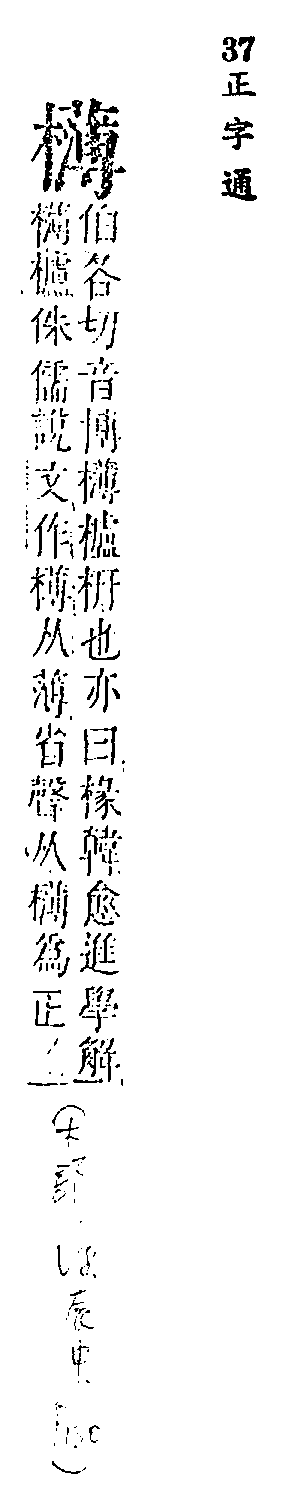 37
正字通
欂
伯各切音博欂櫨枅也亦曰椽韓愈進學解
欂櫨侏儒說文作㯷从薄省聲从欂為正